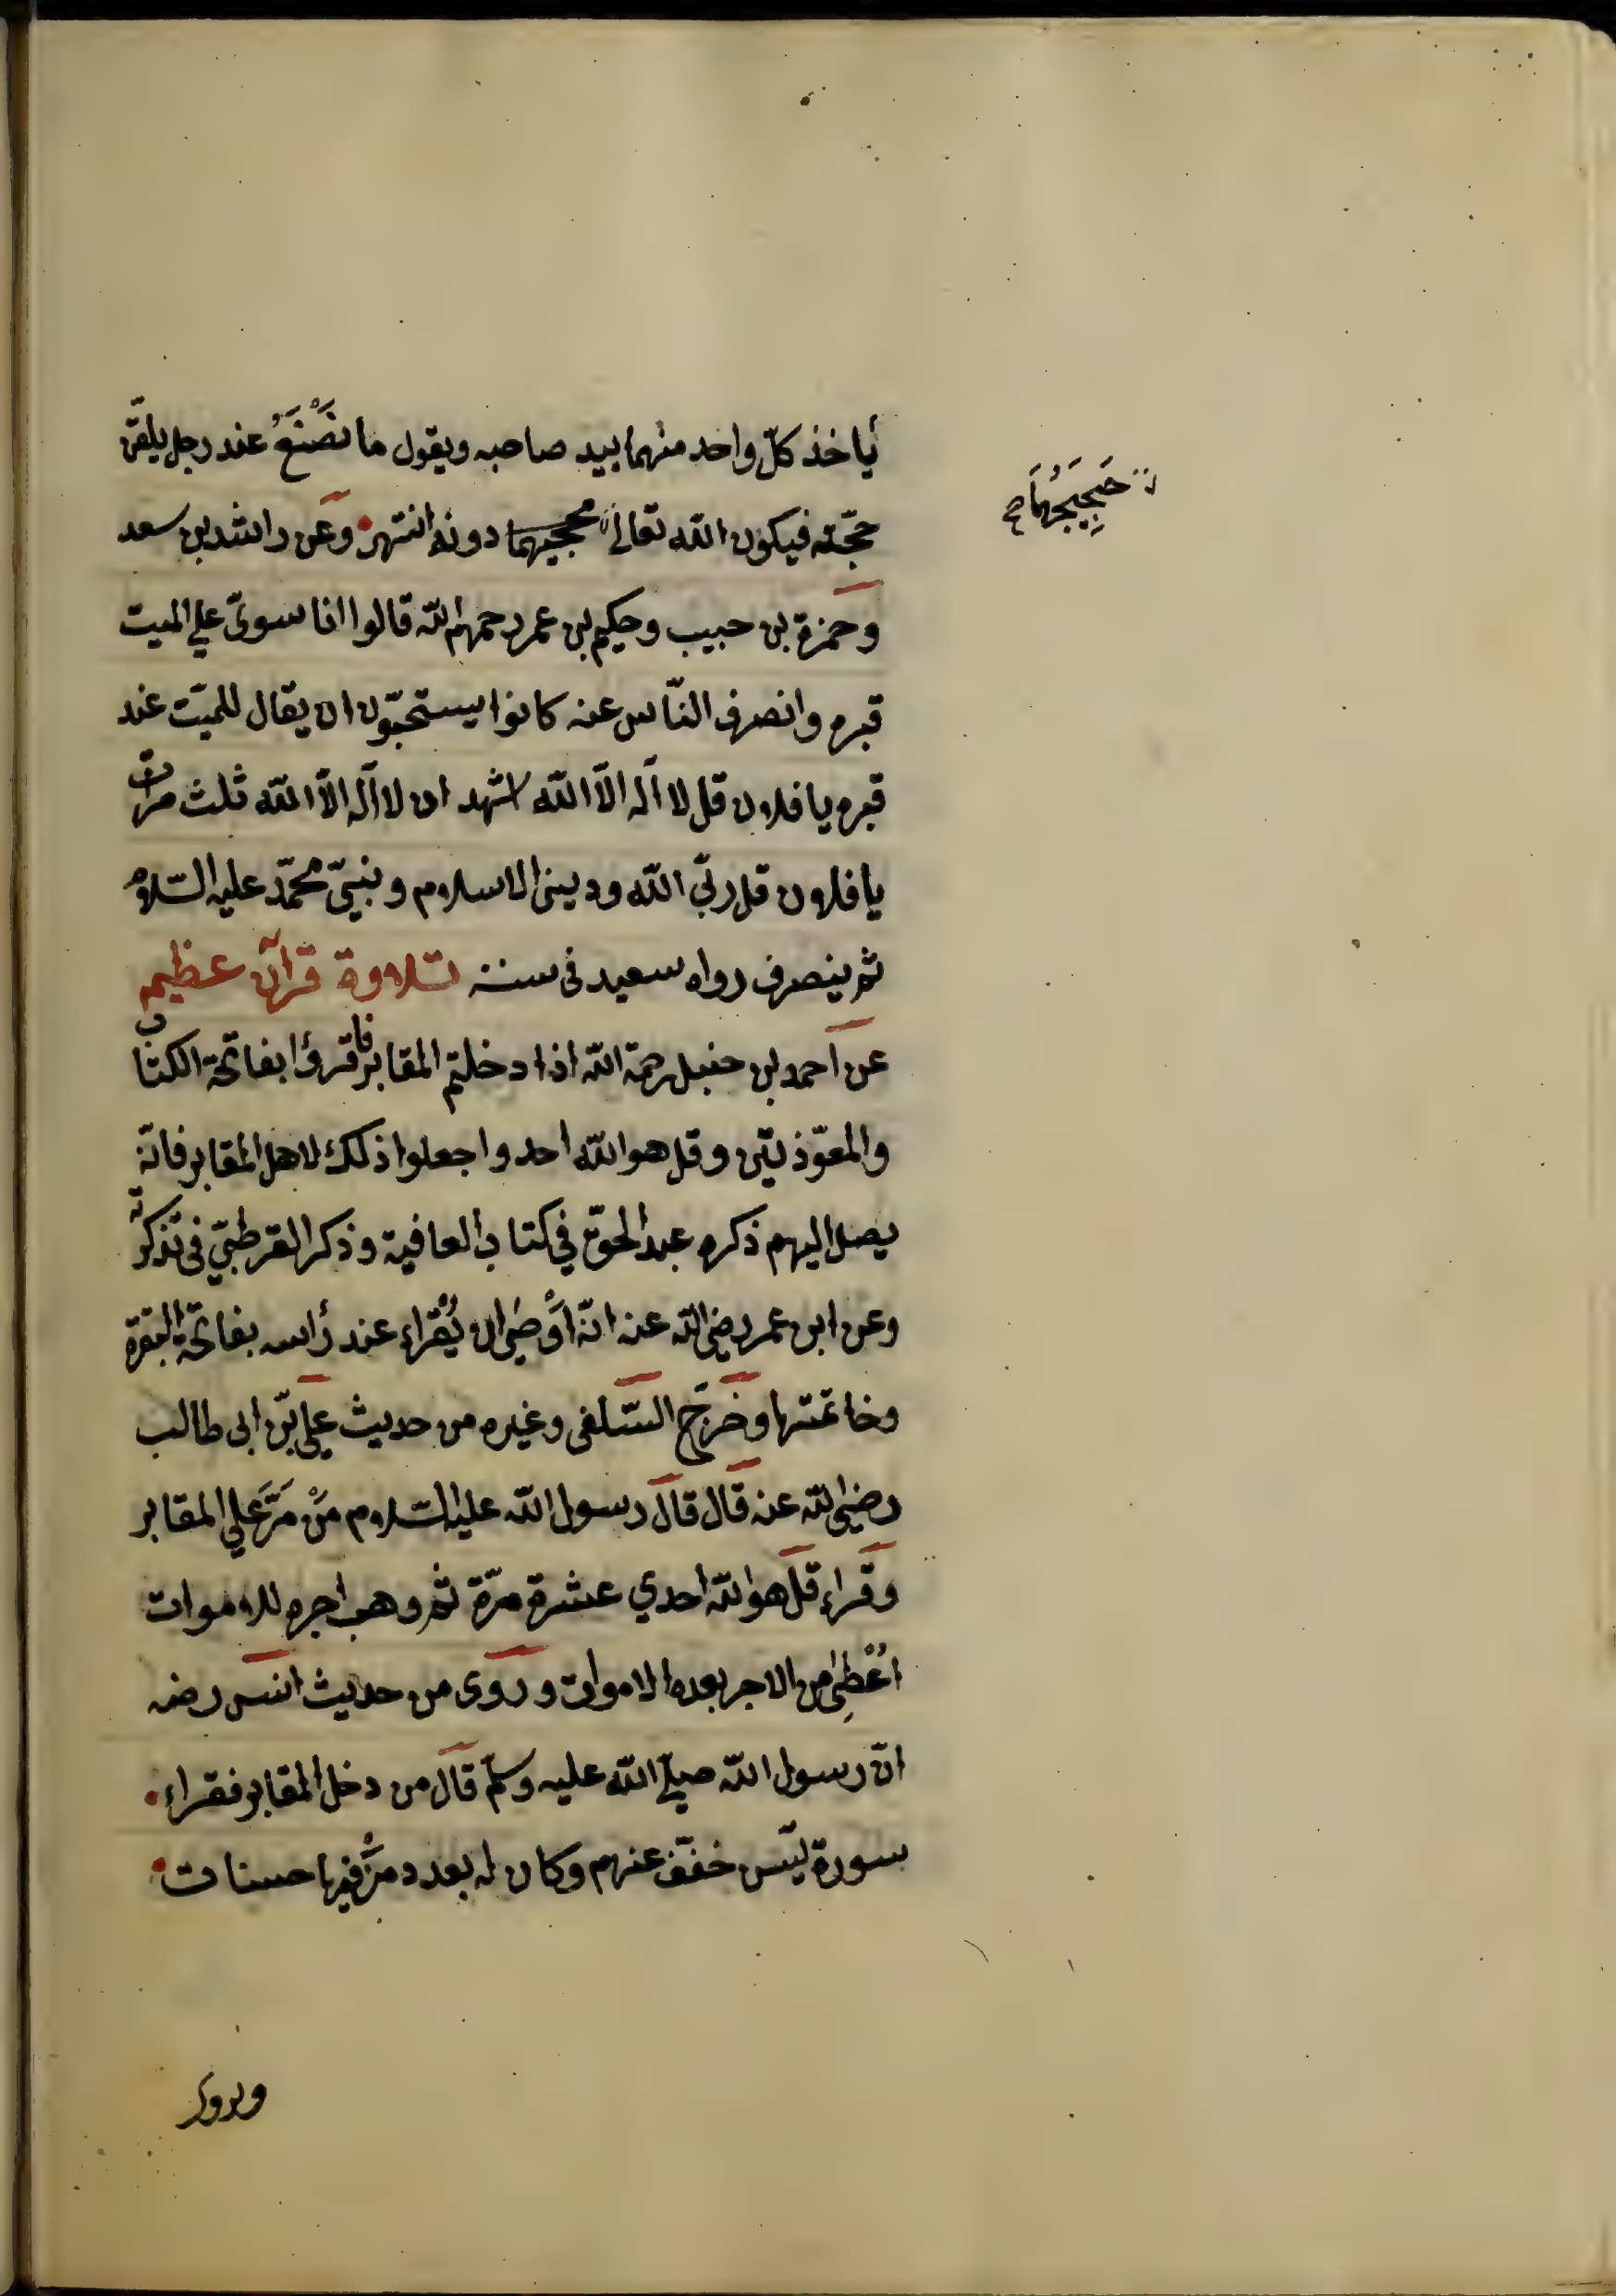 يأخذ كلّ واحد منهما بيد صاحبه ويقول ما نَصْنَعُ عند رجل يلقّن
حجّته فيكون الله تعالى حججيهما دونه انتهى وعن راشد بن سعد
حَجِيجُهُمَا صح
وحمزة بن حبيب وحكيم بن عمر رحمهم الله قالوا اذا سوىّ على الميت
قبره وانصرف النّاس عنه كانوا يستحبّون ان يقال للميّت عند
قبره يا فلان قل لا آله الّا الله اشهد ان لا آله الّا الله ثلث مرّات
يا فلان قل ربّي الله وديني الاسلام ونبيّي محمّد عليه السّلام
ثم ينصرف رواه سعيد فى سننه تلاوة قرآن عظيم
عن احمد بن حنبل رحمة الله اذا دخلتم المقابر فاقرؤا بفاتحة الكتاب
والمعوّذتين وقل هو الله احد واجعلوا ذلك لاهل المقابر فانّه
يصل اليهم ذكره عبد الحقّ في كتاب العافية وذكر القرطبيّ فى تذكرته
وعن ابن عمر رضي الله عنه انّه اَوْصٰى ان يُقْراء عند رأسه بفاتحة البقرة
وخاتمتها وخَرَّجَ السّلفى وغيره من حديث علي بن ابى طالب
رضي الله عنه قال قال رسول الله عليه السّلام مَنْ مَرَّ عَلي المقابر
وقراء قل هو الله احدي عشرة مرّة ثم وهب اجره للاموات
اُعْطِىَ من الاجر بعدد الاموات وروى من حديث انس رضه
انّ رسول الله صلّي الله عليه وسلّم قال من دخل المقابر فقراء
سورة يٓس خفّف عنهم وكان له بعدد مَنْ فيها حسنات